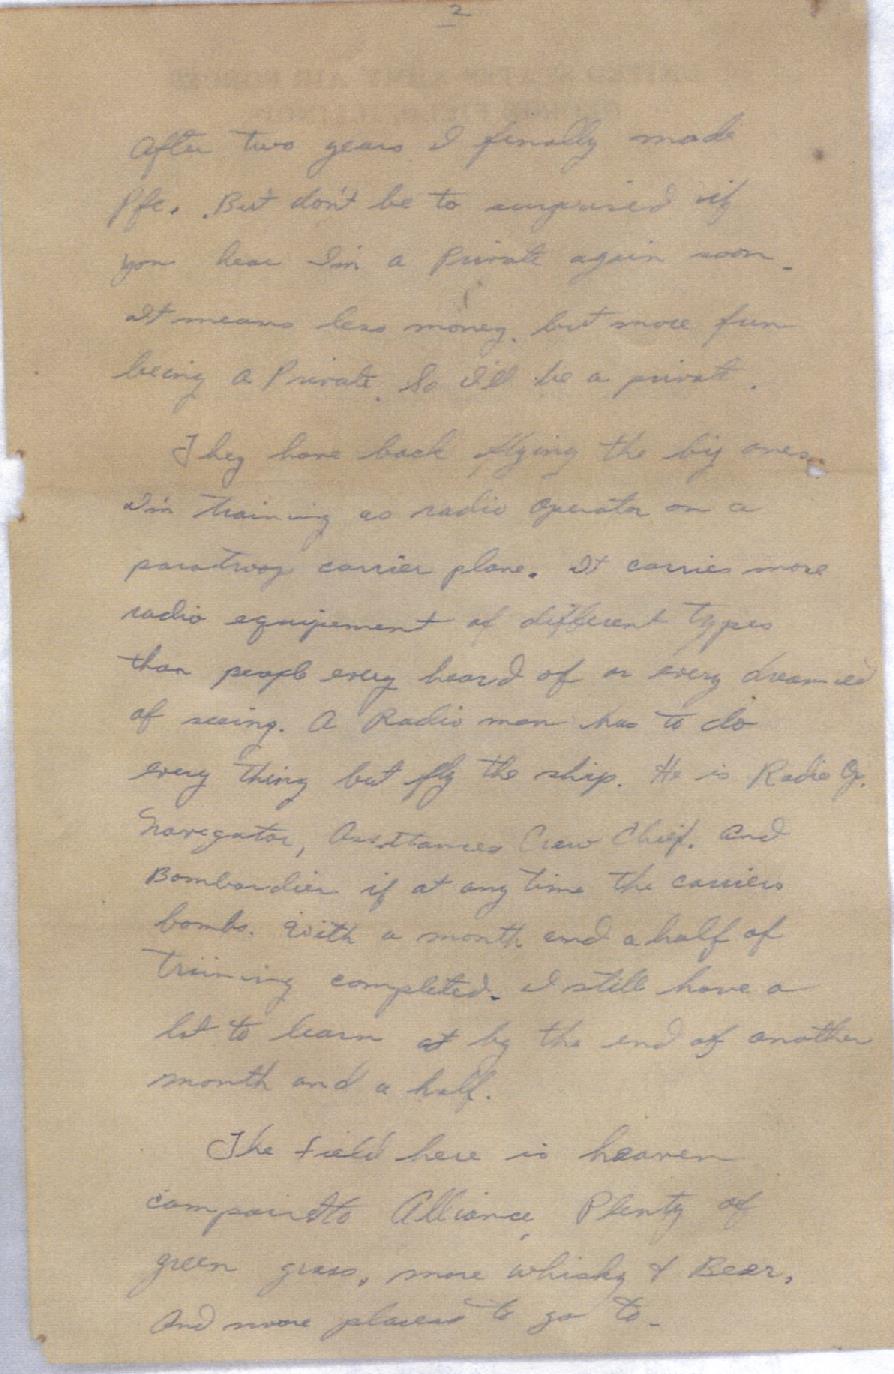 2
After two years I finally made
Pfc. But don't be to surprised if
you hear I'm a Private again soon.
It means less money, but more fun
being a Private. So I'll be a private.
They have back flying the big ones.
I'm training as radio operator on a
paratroop carrier plane. It carries more
radio equipement of different types
than people every heard of or every dreamed
of seeing. A Radio man has to do
every thing but fly the ship. He is Radio Op.
Navegator, Crew Chief. and
Bombardier if at any time the carriers
bombs. With a month and a half of
training completed. I still have a
lot to learn at by the end of another
month and a half.
The field here is heaven
to Alliance, Plenty of
green grass, more whisky & Beer,
and more places to go to.